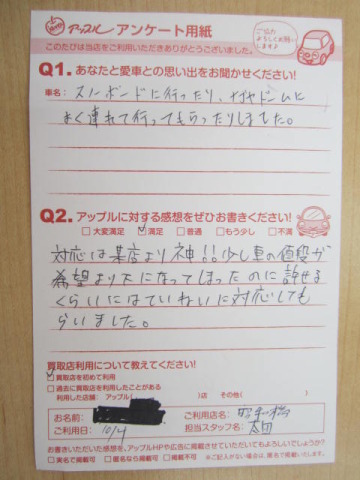 アップル アンケート用紙
このたびは当店をご利用いただきありがとうございました。
ご協力
よろしくお願い
します♪
Q1. あなたと愛車との思い出をお聞かせください!
車名: スノーボードに行ったり、ナゴヤドームに
よく連れて行ってもらったりしました。
Q2. アップルに対する感想をぜひお書きください!
□大変満足 ☑満足 □普通 □もう少し □不満
対応は某店より神!!少し車の値段が
希望より下になってしまったのに許せる
くらいにはていねいに対応しても
らいました。
買取店利用について教えてください!
☑買取店を初めて利用
□過去に買取店を利用したことがある
利用した店舗: アップル( )店 その他( )
お名前:
ご利用店名: 昭和橋
ご利用日: 10/4
担当スタッフ名: 太田
お書きいただいた感想を、アップルHPや広告に掲載させていただいてもよろしいでしょうか?
□実名で掲載可 □匿名なら掲載可 □掲載不可 ※ご記入がない場合は、匿名で掲載いたします。